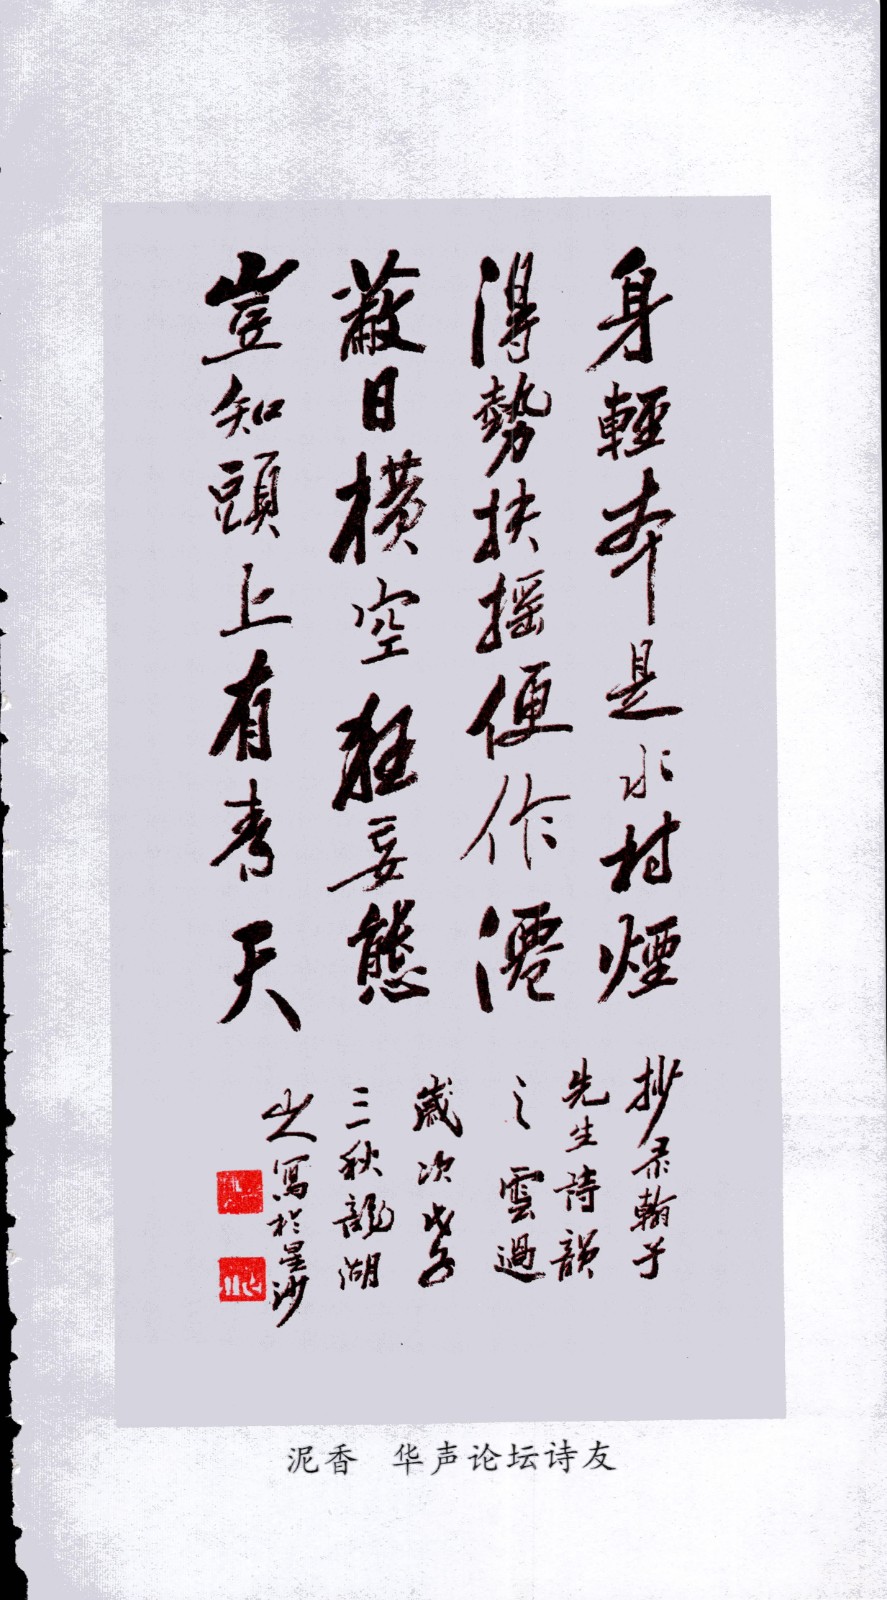 身輕本是水村煙
得勢扶摇便作僊
蔽日橫空狂妄態
豈知頭上有青天
抄录翰子
先生詩韻
之雲過
歲次戊子
三秋龍湖
山人寫於星沙
泥香 华声论坛诗友